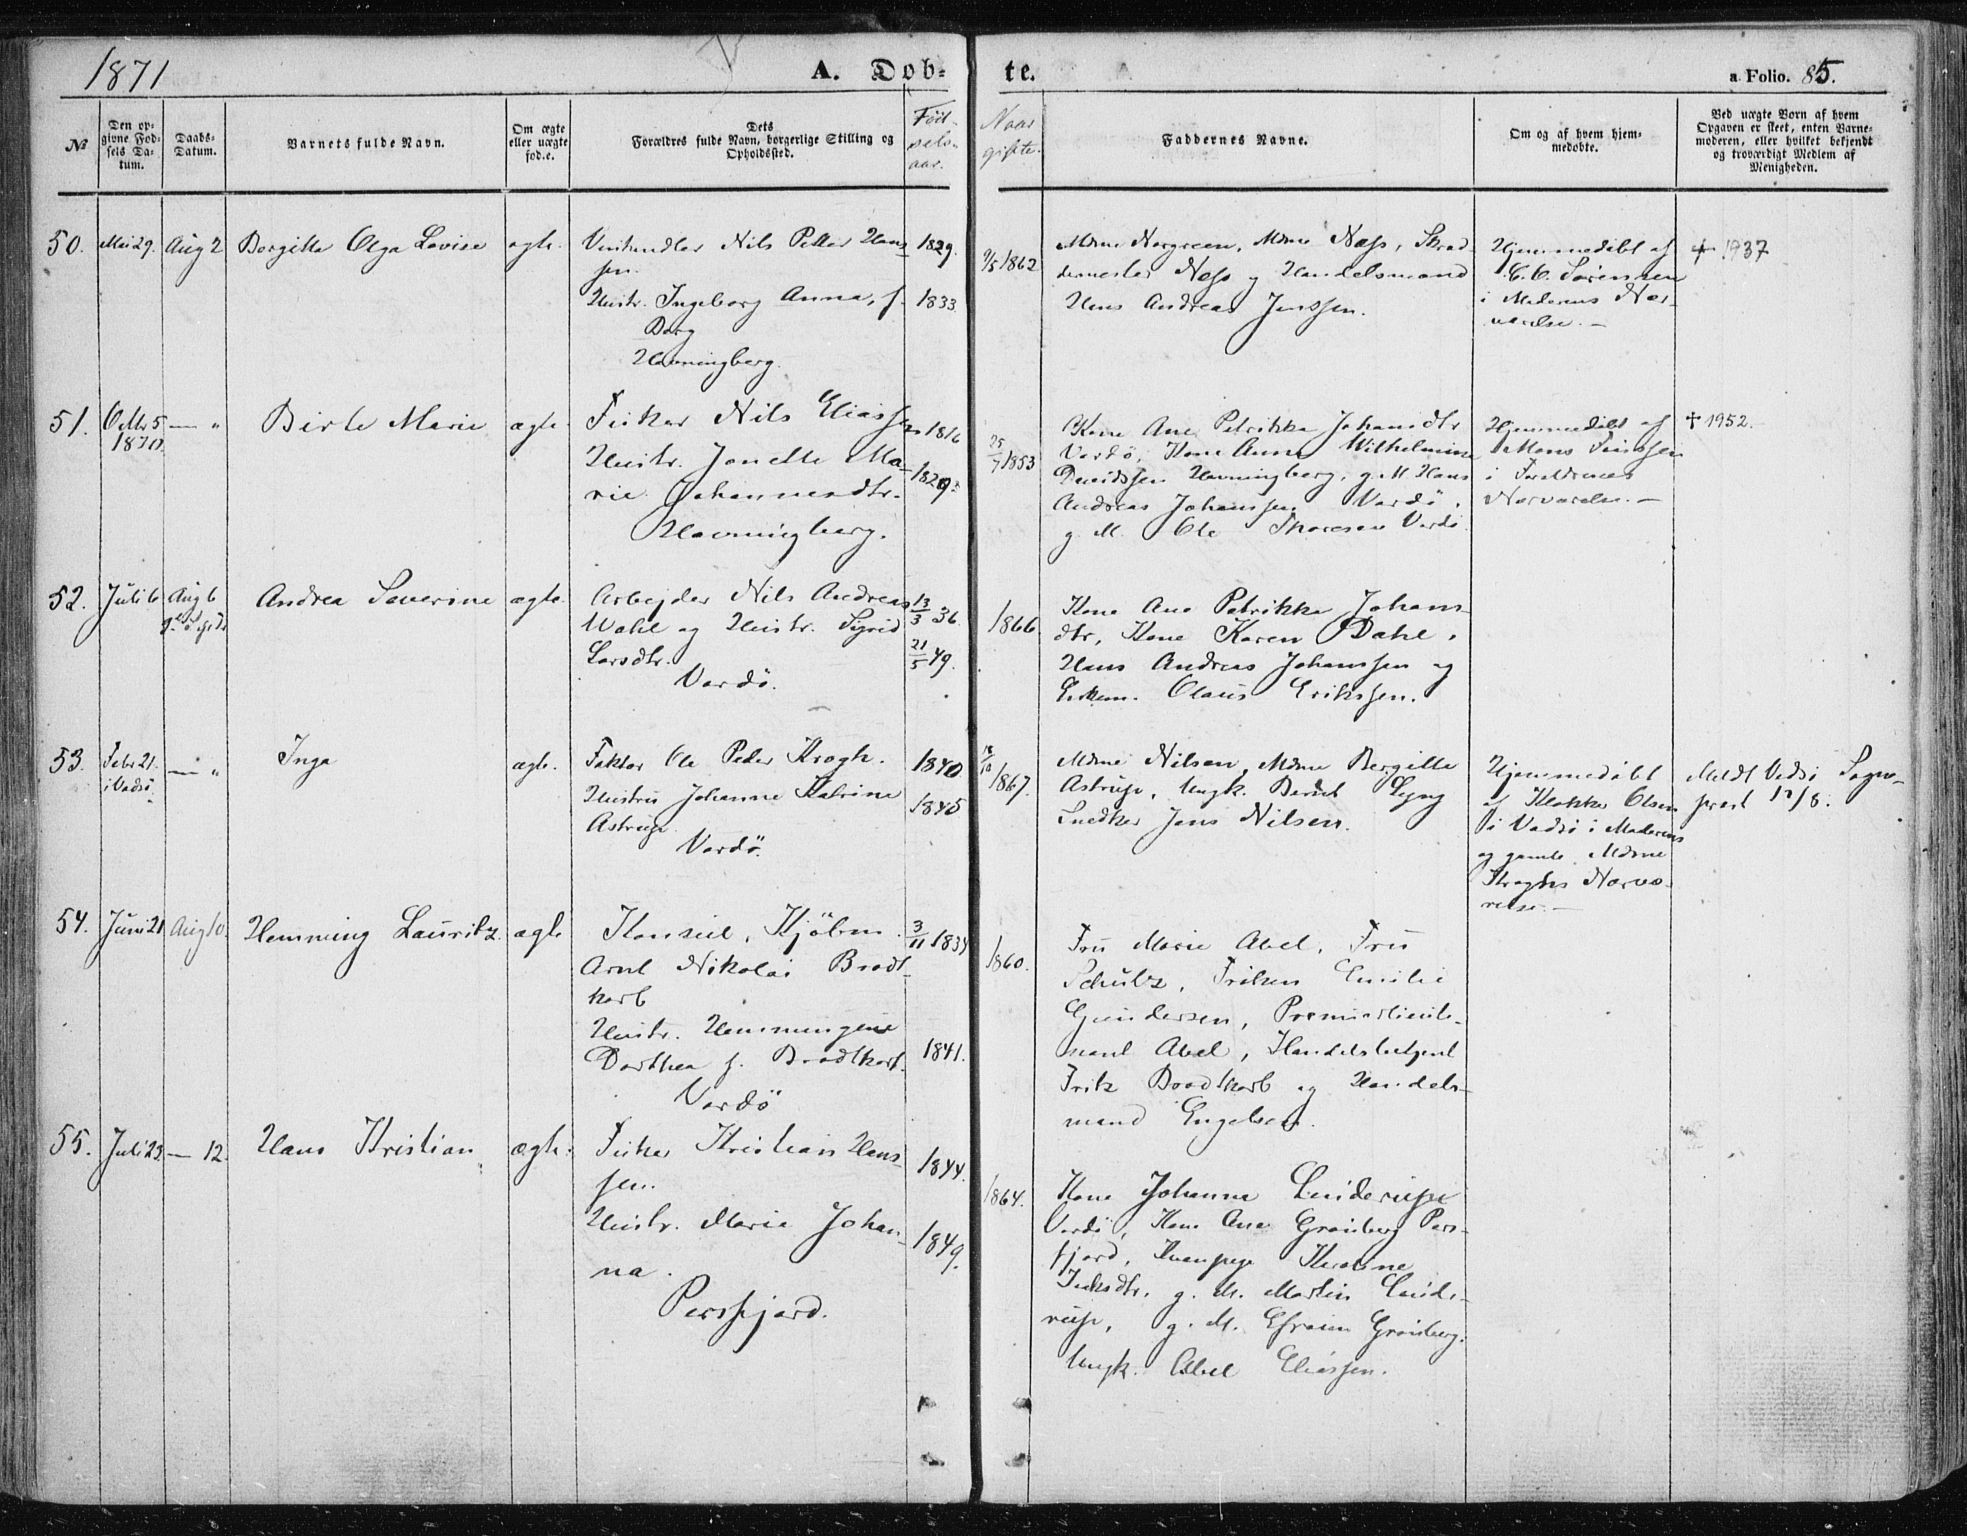 1871
A. Døb-
te.
a Folio. 85.
№
Den op-
givne Fød-
sels Da-
tum.
Daabs-
Datum.
Barnets fulde Navn.
Om ægte
eller uægte
fød.e.
Dets
Forældres fulde Navn, borgerlige Stilling og
Opholdssted.
Fød-
sels-
aar.
Naar
gifte.
Faddernes Navne.
Om og af hvem hjem-
medøbte.
Ved uægte Børn af hvem
Opgaven er skeet, enten Barne-
moderen, eller hvilket bekjendt
og troværdigt Medlem af
Menigheden.
50. Mai 29. Aug 2 Borgitta Olga Lovise ægte.
Nils Petter Hans
sen. 1829.
Hustr. Ingeborg Anna, f. 1833
Borg
Havningberg.
9/5 1862
Mdme Norgreen, Mdme Næss,
Næss og Handelsmand
Hans Andreas Jenssen.
Hjemmedøbt af
C. C. Sørensen
i Moderens Nær-
værelse. —
✝ 1937
51. Octbr 5
1870 — " Birte Marie ægte
Fisker Nils Eliassen 1816
Hustr. Jonette Ma-
rie Johannesdtr. 1829
Havningberg.
25/7 1853
Kone Ane Petrikka Johansdtr
Vardö, Kone Anne Wilhelmine
Davidssen Havningberg, g. M Hans
Andreas Johanssen Vardö,
g. M. Ole Thoresen Vardö.
Hjemmedøbt af
Mons
i Forældrenes
Nærværelse. —
✝ 1952.
52. Juli 6 Aug 6 Andrea Severine ægte.
Arbejder Nils Andreas
Wahl og Hustr. Sigrid
Larsdtr.
Vardö.
13/3 36.
21/5 49.
1866
Kone Ane Petrikke Johans-
dtr, Kone Karen Dahl,
Hans Andreas Johanssen og
Enkem. Olaus Erikssen.
53. Febr 21.
i Vadsö — " Inga ægte.
Faktor Ole Peder Krogh. 1840
Hustru Johanne Katrine 1845
Astrup.
Vardö.
18/10 1867.
Mdme Nilsen, Mdme Bergitte
Astrup, Ungk. Bernt Lyng
Snedker Jens Nilsen.
Hjemmedøbt
af Klokker Olsen
i Vadsö i Moderens
og gamle Mdme
Kroghs Nærvæ-
relse. —
Meldt Vadsö Sogne-
prest 17/8.
54. Juni 21 Aug 10. Hemming Lauritz. ægte
Konsul, Kjöbm.
Arnt Nikolai Brodt-
korb
Hustr. Hemmingine
Dorthea f. Brodtkorb.
Vardö
3/11 1834
1841.
1860.
Fru Marie Abel, Fru
Schultz, Frøken Emilie
Gundersen, Premierlieute-
nant Abel, Handelsbetjent
Fritz Brodtkorb og Handels-
mand Engelsen.
55. Juli 23 — 12. Hans Kristian ægte.
Fisker Kristian Hans-
sen. 1844.
Hustr. Maria Johan-
na. 1849.
Persfjord.
1864.
Kone Johanne Linderup
Vardö, Kone Ane Grønberg Pers-
fjord,
g. M. Martin Linde-
rup, g. M. Efraim Grønberg.
Ungk. Abel Eliassen.